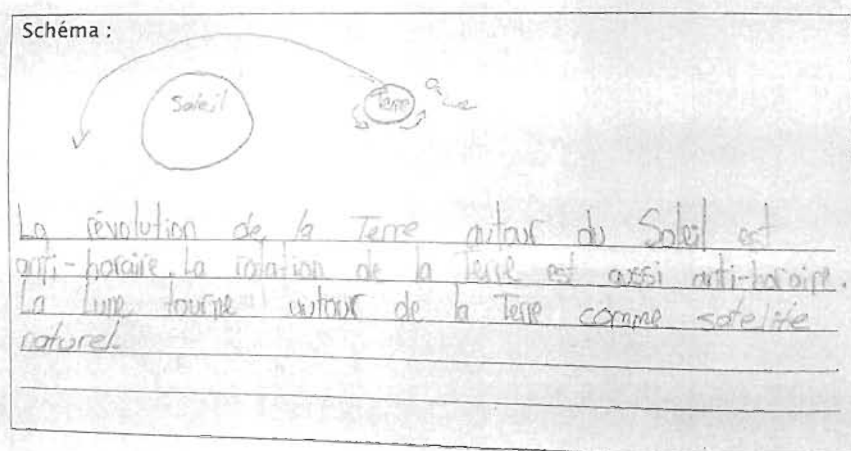 Schéma :
Soleil
Terre
Lune
La révolution de la Terre autour du Soleil est
anti-horaire. La rotation de la Terre est aussi anti-horaire.
La Lune tourne autour de la Terre comme satelite
naturel.